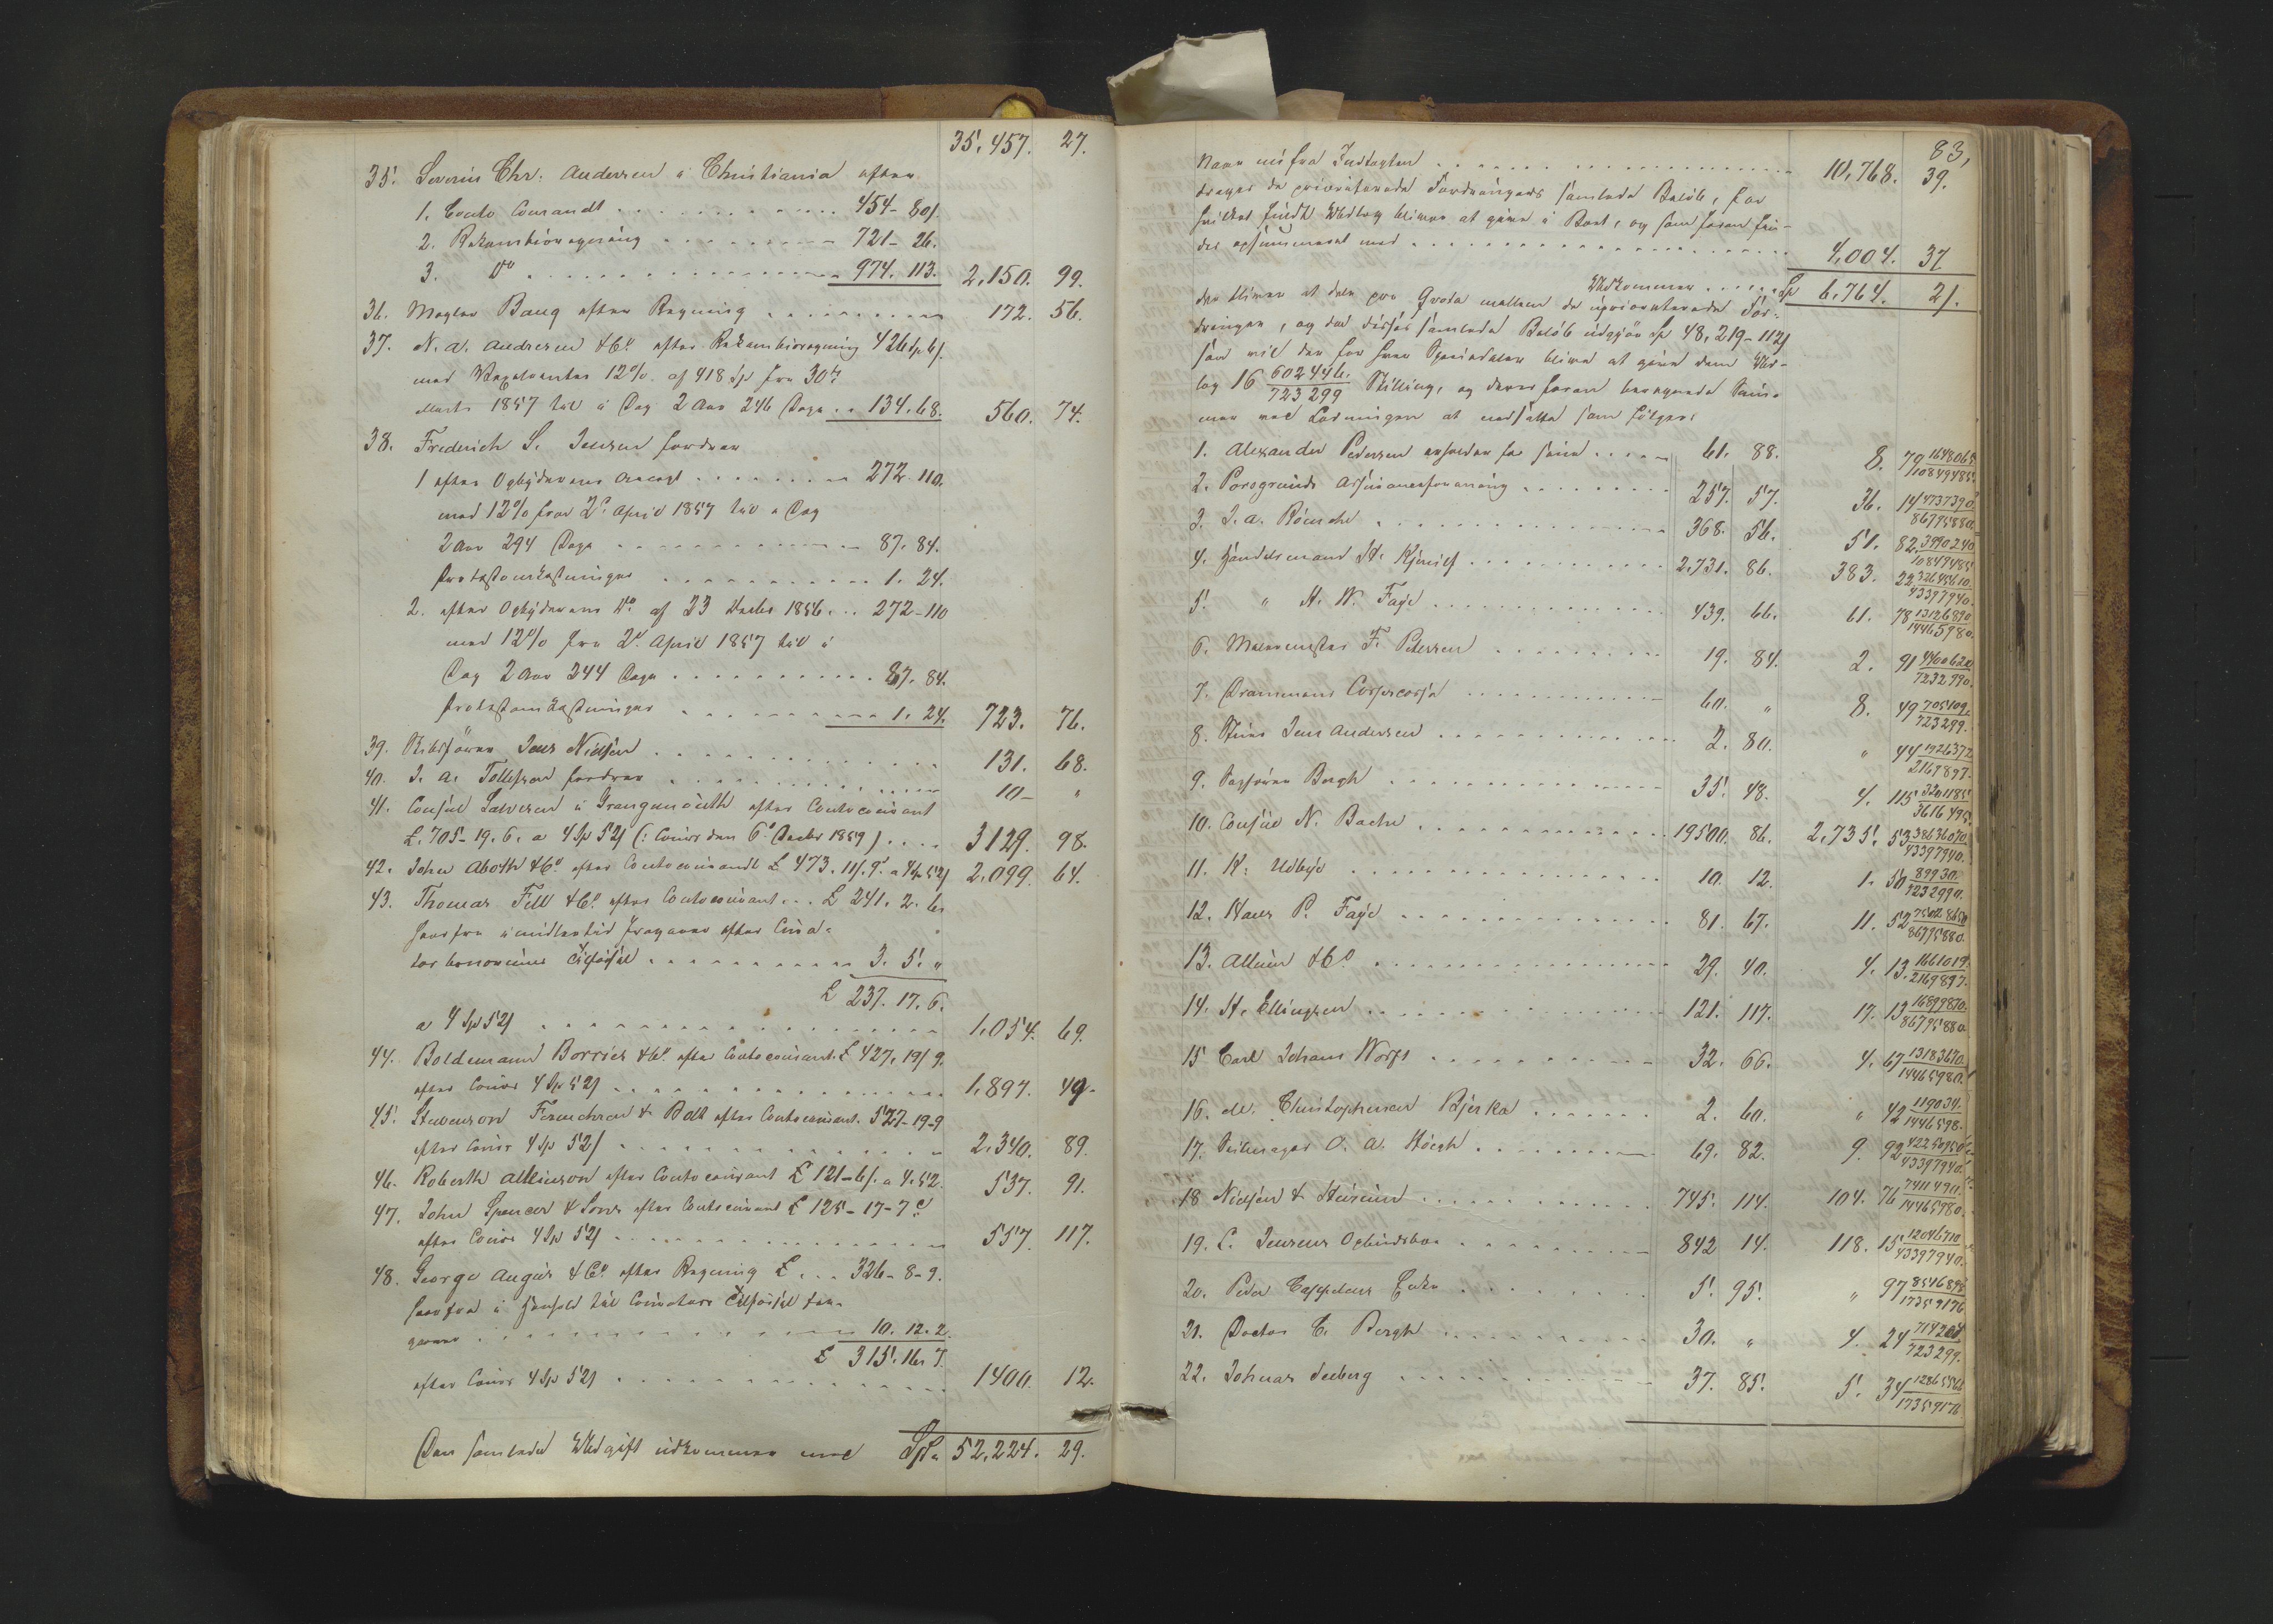 35,457. 27.
35. Severin Chr. Andersen i Christiania efter
1. Conto Courandt 454-80/.
2. Rekambioregning 721-26.
3. Do 974. 113. 2,150. 99.
36. Mægler Bang efter Regning 172. 56.
37. N. A. Andresen & Co efter Rekambioregning 426 Sp 6/.
med Vexelrenter 12% af 418 Sp fra 30te
Marts 1857 til i Dag 2 Aar 246 Dage 134. 68. 560. 74.
38. Frederich S. Jensen fordrer
1 efter Opbyderens Accept 272 110.
med 12% fra 2d April 1857 til i Dag
2 Aar 244 Dage 87. 84.
Protestomkostninger 1. 24.
2. efter Opbyderens Do af 23 Decbr 1856 272-110
med 12% fra 2d April 1857 til i
Dag 2 Aar 244 Dage 87. 84.
Protestomkostninger 1. 24. 723. 76.
39. Skibsfører Jens Nielsen 131. 68.
40. J. A. Tollefsen fordrer 10- "
41. Consul Salvesen i Grangemouth efter Contocourant
£. 705-19. 6. a 4 Sp 52/ (: Cours den 6d Decbr 1859) 3129. 98.
42. John Aboth & Co efter Contocourandt £ 473. 11/. 9d a 4 Sp 52/ 2,099. 64.
43. Thomas Fell & Co efter Contocourant £ 241. 2. 6
herfra imidlertid fragaaer efter Cura-
tor bonorums 3. 5. "
£ 237. 17. 6.
a 4 Sp 52/ 1,054. 69.
44. Boldemann Borries & Co efter Contocourant £ 427, 19/ 9.
efter Cours 4 Sp 52/ 1,897. 49.
45. Stevenson & Batt efter Contocourant 527-19-9
efter Cours 4 Sp 52/ 2,340. 89.
46. Roberth Allinson efter Contocourant £ 121-6/. a 4. 52. 537. 91.
47. John Spencer & Sons efter Contocourant £ 125-17-7d
efter Cours 4 Sp 52/ 557. 117.
48. George Angus & Co efter Regning £ 326-8-9.
herfra i Henhold til Curators
10. 12. 2.
£ 315. 16 7.
efter Cours 4 Sp 52/ 1400. 12.
Den samlede Udgift udkommer med Spd 52,224. 29.
83,
Naar nu fra Indtægten 10,768. 39.
drages de prioriterede Fordringers samlede Beløb, for
hvilket fuldt Udlæg bliver at gjøre i Boet, og som foran fin-
des opsummeret med 4,004. 37
Udkommer Sp 6,764. 2/.
der bliver at dele pro Qvota mellem de uprioriterede For-
dringer, og da disses samlede Beløb udgjør Sp 48,219-112/
saa vil der for hver Speciedaler blive at gjøre dem Ud-
læg 16 602446/723299 Skilling, og deres foran beregnede Sum-
mer ved Lodningen at nedsætte som følger:
1. Alexander Pedersen erholder for sine 61. 88. 8. 79 1648065/10849485
2. Porsgrunds Assuranceforening 257. 57. 36. 14 4737390/86795880
3. J. A. 368. 56. 51. 82 3990240/10849485
4. Handelsmand H. 2,731. 86. 383. 22 32645610/43397940.
5. " H. W. Faye 439. 66. 61. 78 13126890/14465980.
6. Malermester F. Petersen 19. 84. 2. 91 4460620/7232990.
7. Drammens 60. " 8. 49 705109/723299.
8. Jens Andersen 2. 80. " 44 1926372/2169897.
9. Sagfører Bergh 35. 48. 4. 115 3201185/3616495.
10. Consul N. Bache 19500. 86. 2,735. 53 38636070/43397940.
11. K. Udbye 10. 12. 1. 50 89930/7232990.
12. Hans P. Faye 81. 67. 11. 52 75028650/86795880.
13. Allum & Co 29. 40. 4. 13. 1661019/2169897.
14. H. Ellingsen 121. 117. 17. 13 16899870/86795880.
15 Carl Johans 32. 66. 4. 67 13183670/14465980.
16. M. Christophersen Bjerka 2. 60. " 42 119034/1446598.
17. Seilmager O. A. Höegh 69. 82. 9. 92 42250950/43397940.
18 Nielsen & 745. 114. 104. 76 7411490/14465980.
19. C. Jensens Opbudsbo 842 14. 118. 15 12046710/43397940.
20. Peder Cappelens Enke 5. 95. " 97 8546898/17359176
21. Doctor C. Bergh 30. " 4. 24 714204/723299.
22. Johnas Seeberg 37. 85. 5. 34 12865566/17359176